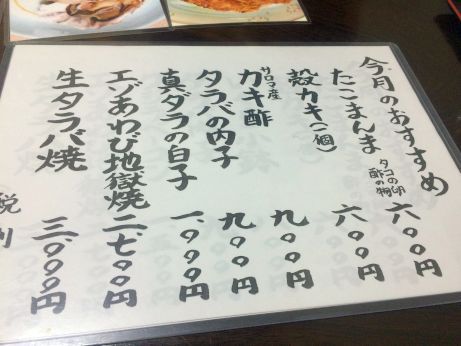 今月のおすすめ
たこまんま タコの卵 酢の物 六〇〇円
殻カキ(一個) 六〇〇円
サロマ産
カキ酢 九〇〇円
タラバの内子 九〇〇円
真ダラの白子 一、〇〇〇円
エゾあわび地獄焼 二、七〇〇円
生タラバ焼 三、〇〇〇円